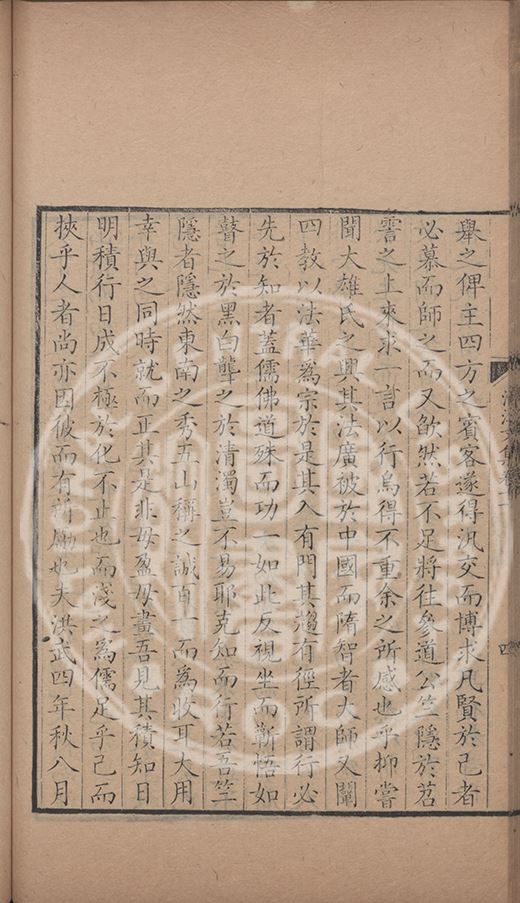 舉之俾主四方之賓客遂得汎交而博求凡賢於己者
必慕而師之而又欿然若不足將往參道公竺隱於苕
霅之上來求一言以行烏得不重余之所感也乎抑嘗
聞大雄氏之興其法廣被於中國而隋智者大師又闡
四教以法華爲宗於是其入有門其趨有徑所謂行必
先於知者蓋儒佛道殊而功一如此反視坐而蘄悟如
瞽之於黑白聾之於清濁豈不易耶克知而行若吾竺
隱者隱然東南之秀五山稱之誠百一而爲收耳大用
幸與之同時就而正其是非毋盈毋畫吾見其積知日
明積行日成不極於化不止也而淺之爲儒足乎己而
挾乎人者尚亦因彼而有所勵也夫洪武四年秋八月
集卷二
四